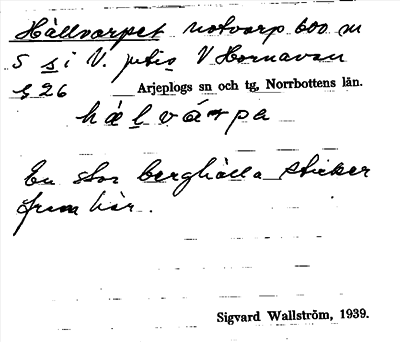 Hällvarpet notvarp 600 m
S s i V. jutis V Hornavan
§ 26 Arjeplogs sn och tg, Norrbottens län.
hälvárpa
En stor berghälla sticker
fram här.
Sigvard Wallström, 1939.